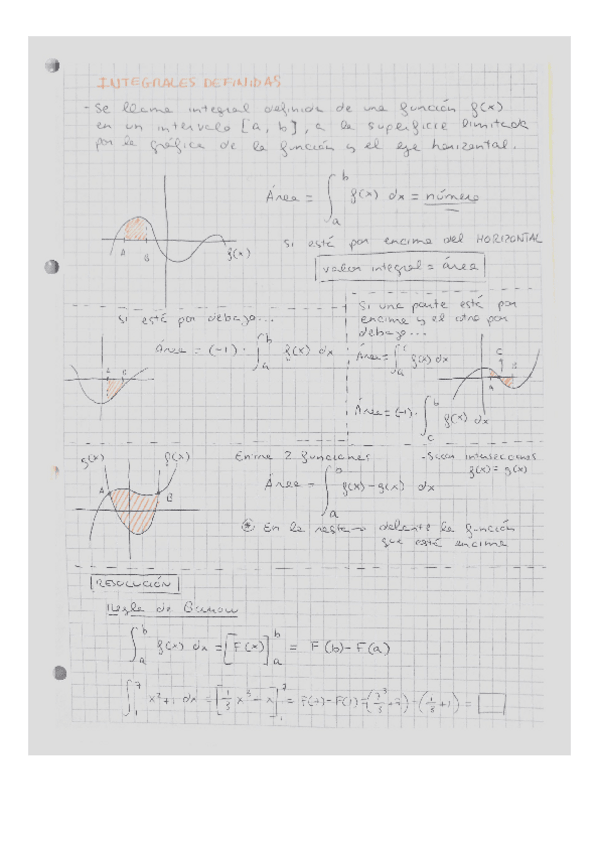 INTEGRALES DEFINIDAS
- Se llama integral definida de una función f(x)
en un intervalo [a, b], a la superficie limitada
por la gráfica de la función y el eje horizontal.
Área = ∫_a^b f(x) dx = número
A B f(x)
si está por encima del HORIZONTAL
valor integral = área
si está por debajo...
Área = (-1) · ∫_a^b f(x) dx
Si una parte está por
encima y el otro por
debajo...
Área = ∫_a^c f(x) dx
C
A B
Área = (-1) · ∫_c^b f(x) dx
g(x) f(x)
A B
Entre 2 funciones
- Sacar intersecciones
f(x) = g(x)
Área = ∫_a^b f(x) - g(x) dx
* En la resta → delante la función
que está encima
RESOLUCIÓN
Regla de Barrow
∫_a^b f(x) dx = [F(x)]_a^b = F(b) - F(a)
∫_1^7 x²+1 dx = [1/3 x³ - x]_1^7 = F(7) - F(1) = (7³/3 + 7) - (1/3 + 1) =